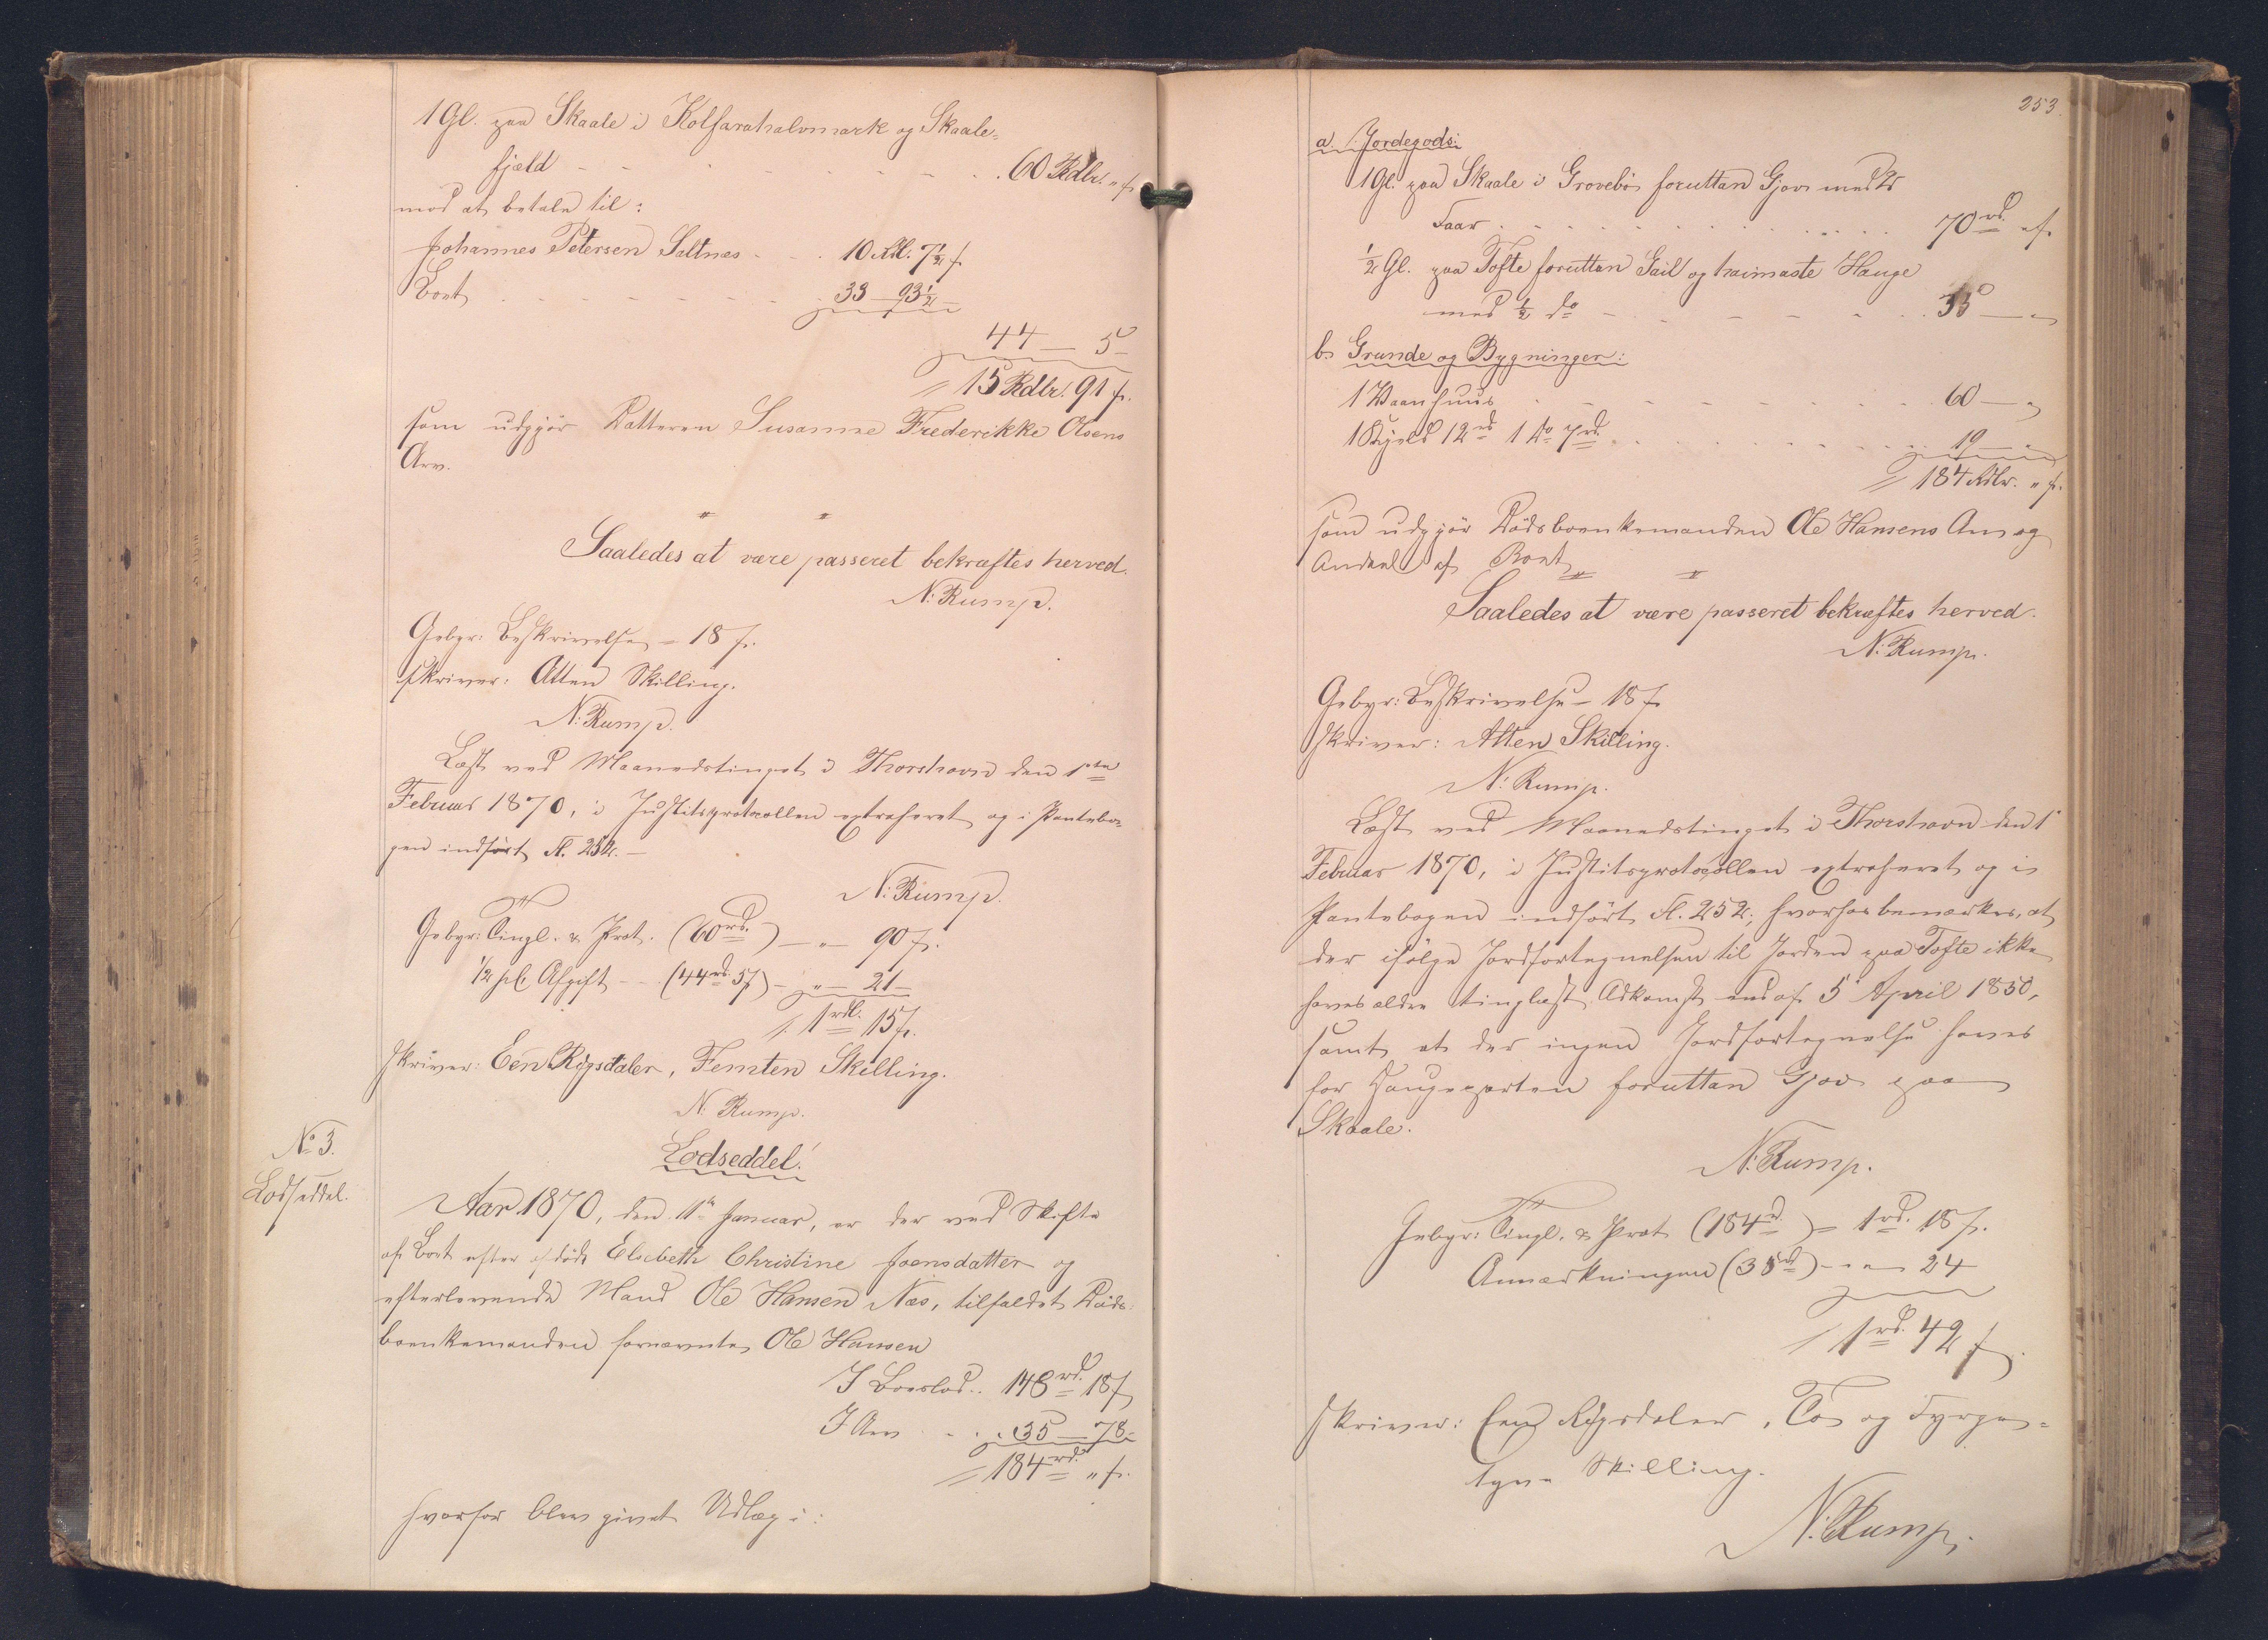 1 Gl. paa Skaale i Kolfarahalvmark og Skaale-
fjeld - - - - - - - 60 Rdlr. " ſ.
mod at betale til:
Johannes Petersen Saltnæs - - 10 Rdl. 7½ ſ.
Boet - - - - - - - 33 — 93½ —
44 — 5 —
= 15 Rdlr. 91 ſ.
som udgjør Datteren Susanne Frederikke Olsens
Arv.
Saaledes at være passeret bekræftes herved.
N: Rump.
Gebyr: Beskrivelse - 18 ſ.
skriver: Atten Skilling.
N: Rump.
Læst ved Maanedstinget i Thorshavn den 1ste
Februar 1870, i Justitsprotocollen extraheret og i Pantebo-
gen indført fl. 252. —
N: Rump.
Gebyr: Tingl. & Prot. (60 rd.) — " — 90 ſ.
½ pC. Afgift - - (44 rd. 5 ſ) — " — 21 —
= 1 rdl. 15 ſ.
skriver: Een Rigsdaler, Femten Skilling.
N. Rump.
No 3.
Lodseddel.
Lodseddel.
Aar 1870, den 11te Januar, er der ved Skifte
af Boet efter afdøde Elsebeth Christine Joensdatter og
efterlevende Mand Ole Hansen Næs, tilfaldet Døds-
boenkemanden fornævnte Ole Hansen
I Boeslod.. 148 rd. 18 ſ
I Arv - . . 35 — 78 -
= 184 rd. " ſ.
hvorfor blev givet Udlæg i:
253.
a. Jordegods:
1 Gl. paa Skaale i Grovebø foruttan Gjov med
Faar . . . . . . . 70 rd. " ſ.
½ Gl. paa Tofte foruttan Gail og haimaste Hauge
med ½ do - - - - - - 35 — "
b. Grunde og Bygninger:
1 Vaanhuus - - - - - - 60 — "
1 Hjeld 12 rd 1 do 7 rd. . . . . . 19 — "
= 184 Rdlr. " ſ.
som udgjør Dødsboenkemanden Ole Hansens Arv og
Andeel af Boet
Saaledes at være passeret bekræftes herved.
N: Rump.
Gebyr: Beskrivelse - 18 ſ.
skriver: Atten Skilling.
N: Rump.
Læst ved Maanedstinget i Thorshavn den 1'
Februar 1870, i Justitsprotocollen extraheret og i
Pantebogen indført fl. 252, hvorhos bemærkes, at
der ifølge Jordfortegnelsen til Jorden paa Tofte ikke
haves ældre tinglæst Adkomst end af 5' April 1850,
samt at der ingen Jordfortegnelse haves
for Haugeparten foruttan Gjov paa
Skaale.
N: Rump.
Gebyr: Tingl. & Prot (184 rd.) = 1 rd. 18 ſ.
Anmærkningen (35 rd) - " — 24
= 1 rd. 42 ſ.
skriver: Een Rigsdaler, To og Fyrge-
tyve Skilling.
N: Rump.